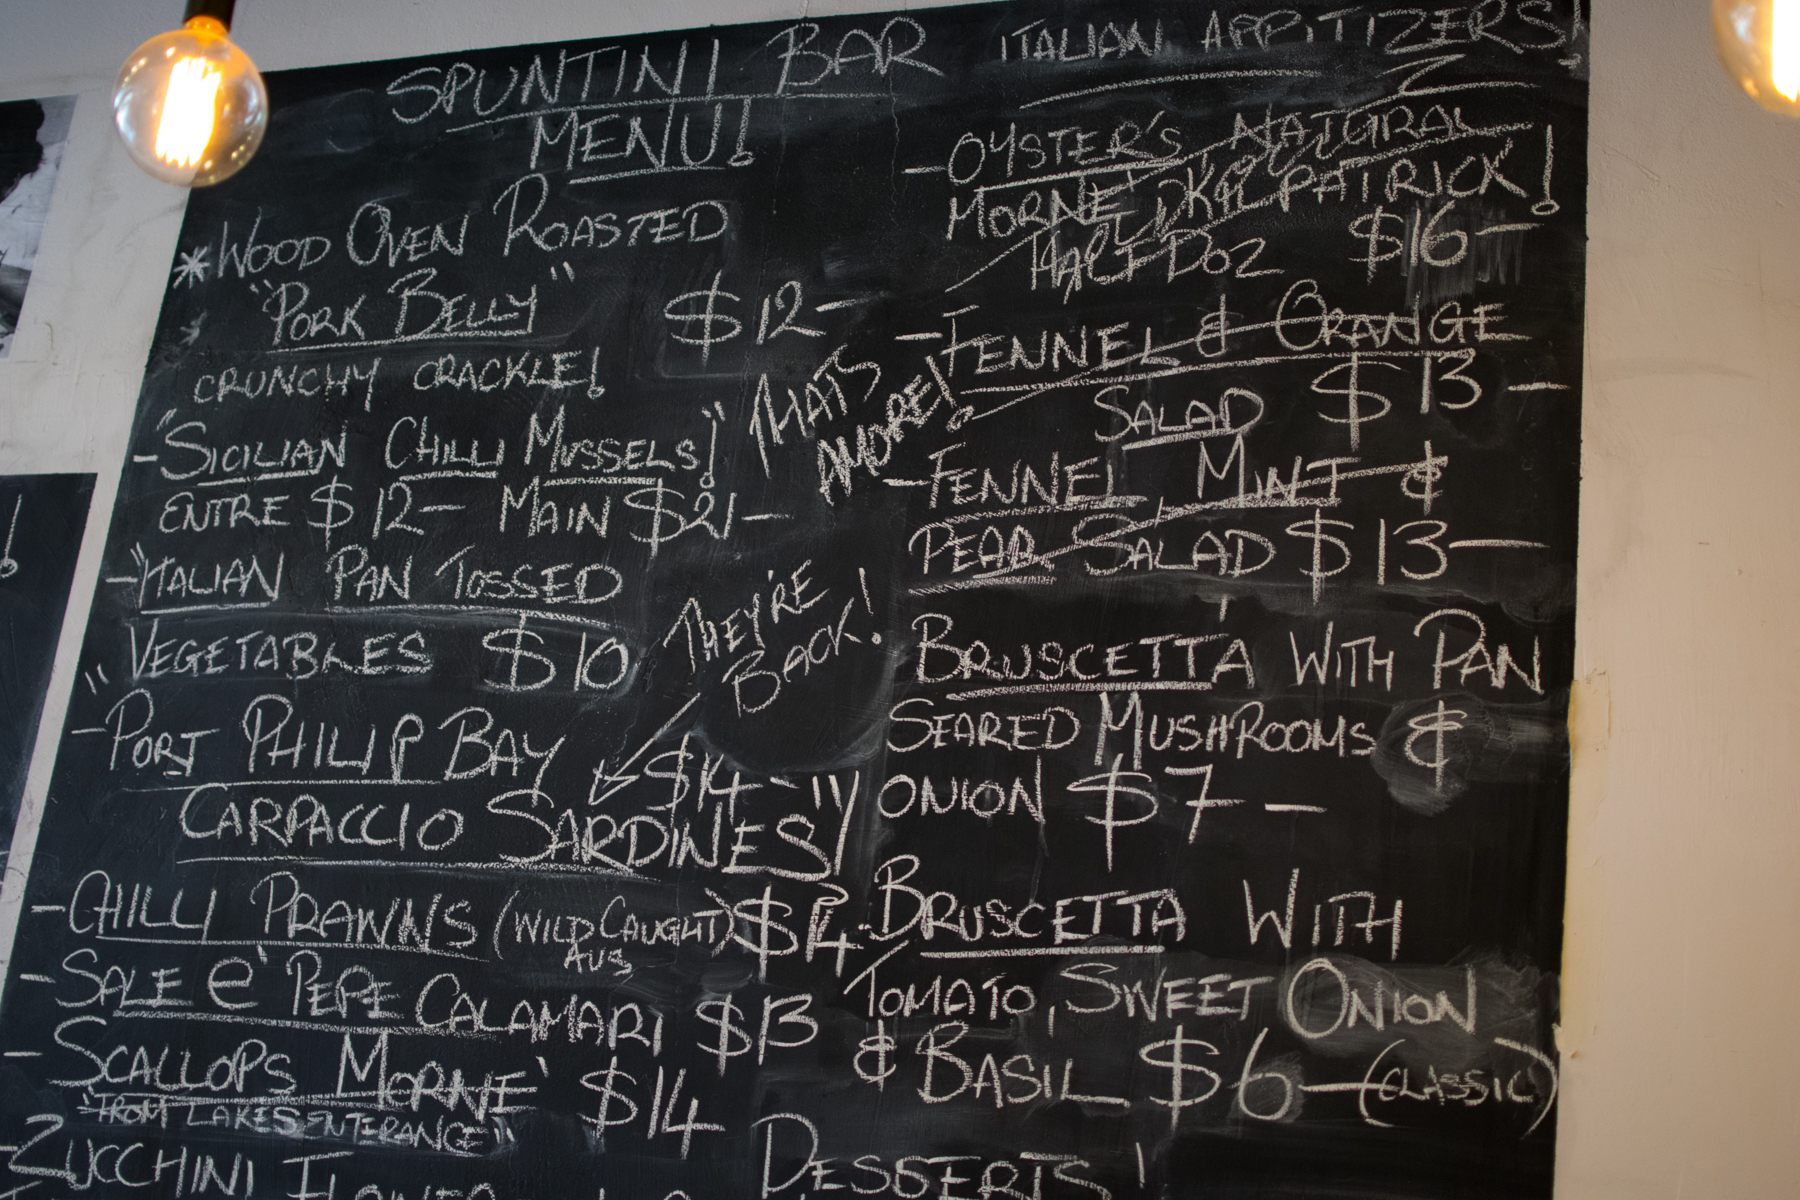 SPUNTINI BAR
MENU!
* WOOD OVEN ROASTED
"PORK BELLY" $12-
CRUNCHY CRACKLE!
-"SICILIAN CHILLI MUSSELS!"
ENTRE $12- MAIN $21-
-"ITALIAN PAN TOSSED
VEGETABLES $10
THATS
AMORE!
THEY'RE
BACK!
"
-PORT PHILIP BAY $14-
CARPACCIO SARDINES!"
-CHILLI PRAWNS (WILD CAUGHT) $14-
AUS
-SALE e' PEPE CALAMARI $13
-SCALLOPS MORNE' $14-
"FROM LAKES ENTERANCE"
-ZUCCHINI
ITALIAN APPITIZERS!
-OYSTER'S NATURAL
MORNE' KILPATRICK!
HALF DOZ $16-
-FENNEL & ORANGE
SALAD $13-
-FENNEL MINT &
PEAR SALAD $13-
BRUSCETTA WITH PAN
SEARED MUSHROOMS &
ONION $7-
BRUSCETTA WITH
TOMATO, SWEET ONION
& BASIL $6-(CLASSIC)
DESSERTS!